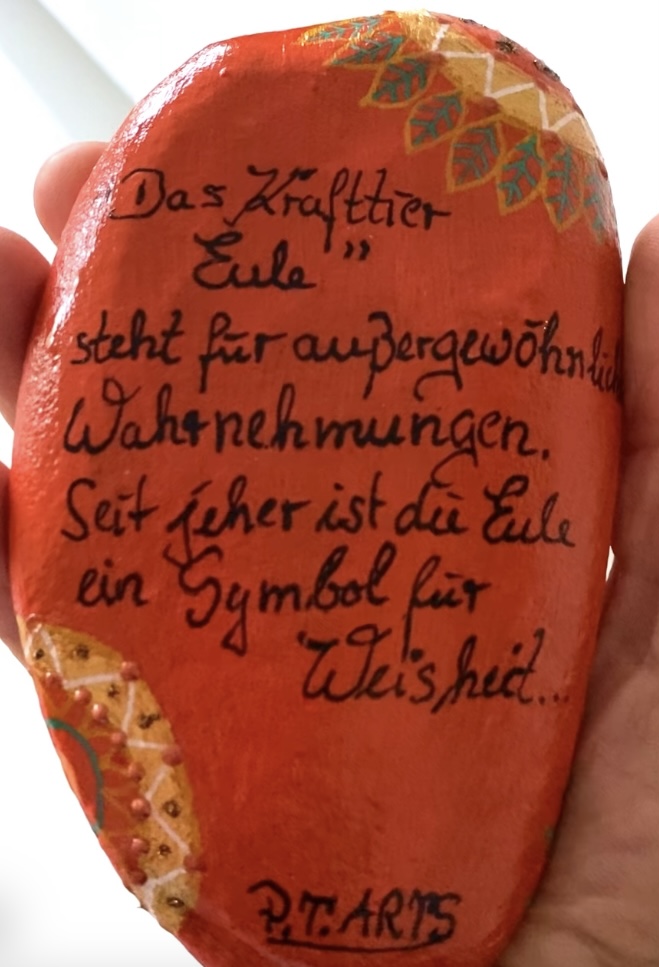 Das Krafttier
Eule"
steht für außergewöhnlich
Wahrnehmungen.
Seit jeher ist die Eule
ein Symbol für
Weisheit...
P.T.ARTS